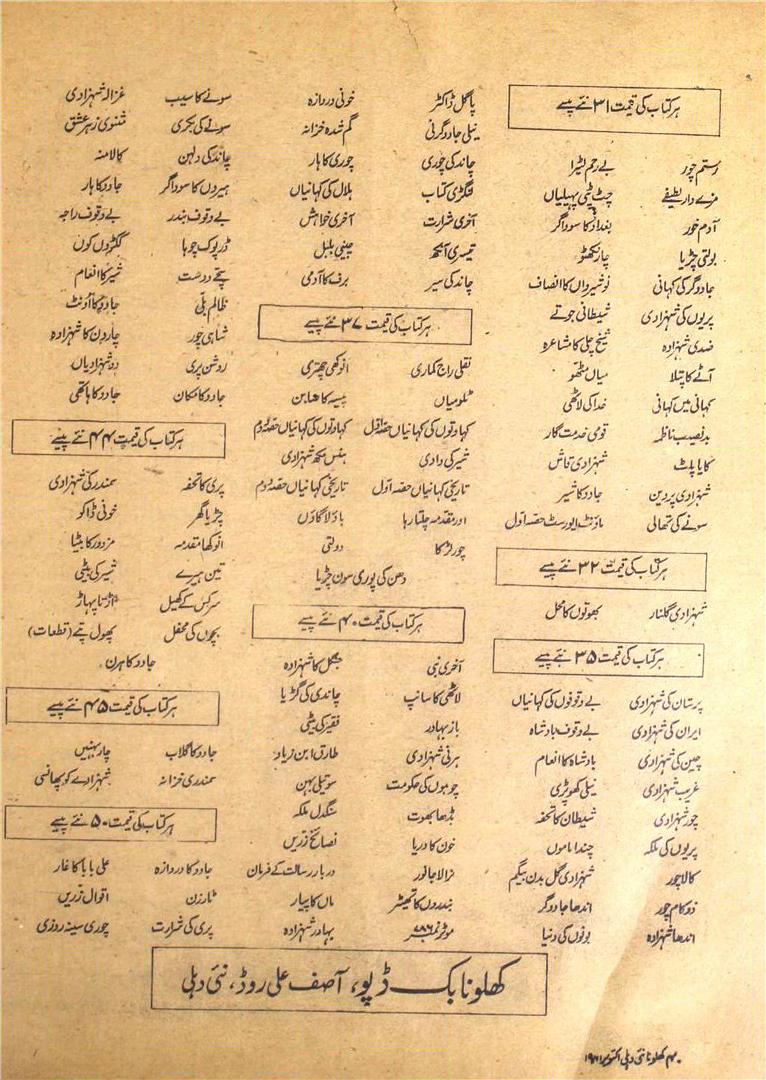 ہر کتاب کی قیمت ۳۱ نئے پیسے
رستم چور
بے رحم لٹیرا
مزے دار لطیفے
چٹ پٹی پہیلیاں
آدم خور
بغداد کا سوداگر
بولتی چڑیا
چار نکھٹو
جادوگر کی کہانی
نوشیرواں کا انصاف
پریوں کی شہزادی
شیطانی جوتے
ضدی شہزادہ
شیخ چلی کا مشاعرہ
آٹے کا پتلا
میاں مٹھو
کہانی میں کہانی
خدا کی لاٹھی
بدنصیب ناظمہ
قومی خدمت گار
کایا پلٹ
شہزادی قاش
شہزادی پروین
جادو کا شیر
سونے کی تھالی
ماؤنٹ ایورسٹ حصہ اول
ہر کتاب کی قیمت ۳۲ نئے پیسے
شہزادی گلنار
بھوتوں کا محل
ہر کتاب کی قیمت ۳۵ نئے پیسے
پرستان کی شہزادی
بے وقوفوں کی کہانیاں
ایران کی شہزادی
بے وقوف بادشاہ
چین کی شہزادی
بادشاہ کا انعام
غریب شہزادی
نیلی کھوپڑی
چور شہزادی
شیطان کا تحفہ
پریوں کی ملکہ
چندا ماموں
کالا چور
شہزادی گل بدن بیگم
زوکام چور
اندھا جادوگر
اندھا شہزادہ
بونوں کی دنیا
پاگل ڈاکٹر
خونی دروازہ
نیلی جادوگرنی
گم شدہ خزانہ
چاند کی چوری
چوری کا ہار
لنگڑی کتاب
ہلال کی کہانیاں
آخری شرارت
آخری خواہش
تیسری آنکھ
چینی بلبل
چاند کی سیر
برف کا آدمی
ہر کتاب کی قیمت ۳۷ نئے پیسے
نقلی راج کماری
انوکھی چھتری
ٹلو میاں
پیسے کا صابن
کہاوتوں کی کہانیاں حصہ اول
کہاوتوں کی کہانیاں حصہ دوم
شیر کی دادی
ہنس مکھ شہزادی
تاریخی کہانیاں حصہ اول
تاریخی کہانیاں حصہ دوم
اور مقدمہ چلتا رہا
باؤلا گاؤں
چور لڑکا
دولتی
دھن کی پوری سون چڑیا
ہر کتاب کی قیمت ۴۰ نئے پیسے
آخری نبی
جنگل کا شہزادہ
لاٹھی کا سانپ
چاندی کی گڑیا
باز بہادر
فقیر کی بیٹی
ہرنی شہزادی
طارق ابن زیاد
چوہوں کی حکومت
سوتیلی بہن
بڈھا بھوت
سنگدل ملکہ
خون کا دریا
نصائح زریں
نرالا جانور
دربار رسالت کے فرمان
بندروں کا تھیٹر
ماں کا پیار
موٹر نمبر ۷۸۶
بہادر شہزادہ
سونے کا سیب
غزالہ شہزادی
سونے کی بکری
مثنوی زہر عشق
چاند کی دلہن
کالا منہ
ہیروں کا سوداگر
جادو کا ہار
بے وقوف بندر
بے وقوف راجہ
ڈرپوک چوہا
ککڑوں کوں
سچے دوست
شیر کا انعام
ظالم بلی
جادو کا اونٹ
شاہی چور
چار دن کا شہزادہ
روشن پری
دو شہزادیاں
جادو کا مکان
جادو کا ہاتھی
ہر کتاب کی قیمت ۴۴ نئے پیسے
پری کا تحفہ
سمندر کی شہزادی
چڑیا گھر
خونی ڈاکو
انوکھا مقدمہ
مزدور کا بیٹا
تین ہیرے
شیر کی بیٹی
سرکس کے کھیل
اڑتا پہاڑ
بچوں کی محفل
پھول پتے (قطعات)
جادو کا ہرن
ہر کتاب کی قیمت ۴۵ نئے پیسے
جادو کا گلاب
چار بہنیں
سمندری خزانہ
شہزادے کو پھانسی
ہر کتاب کی قیمت ۵۰ نئے پیسے
جادو کا دروازہ
علی بابا کا غار
ٹارزن
اقوال زریں
پری کی شرارت
چوری سینہ زوری
کھلونا بک ڈپو، آصف علی روڈ، نئی دہلی
کھلونا نئی دہلی اکتوبر ۱۹۶۱